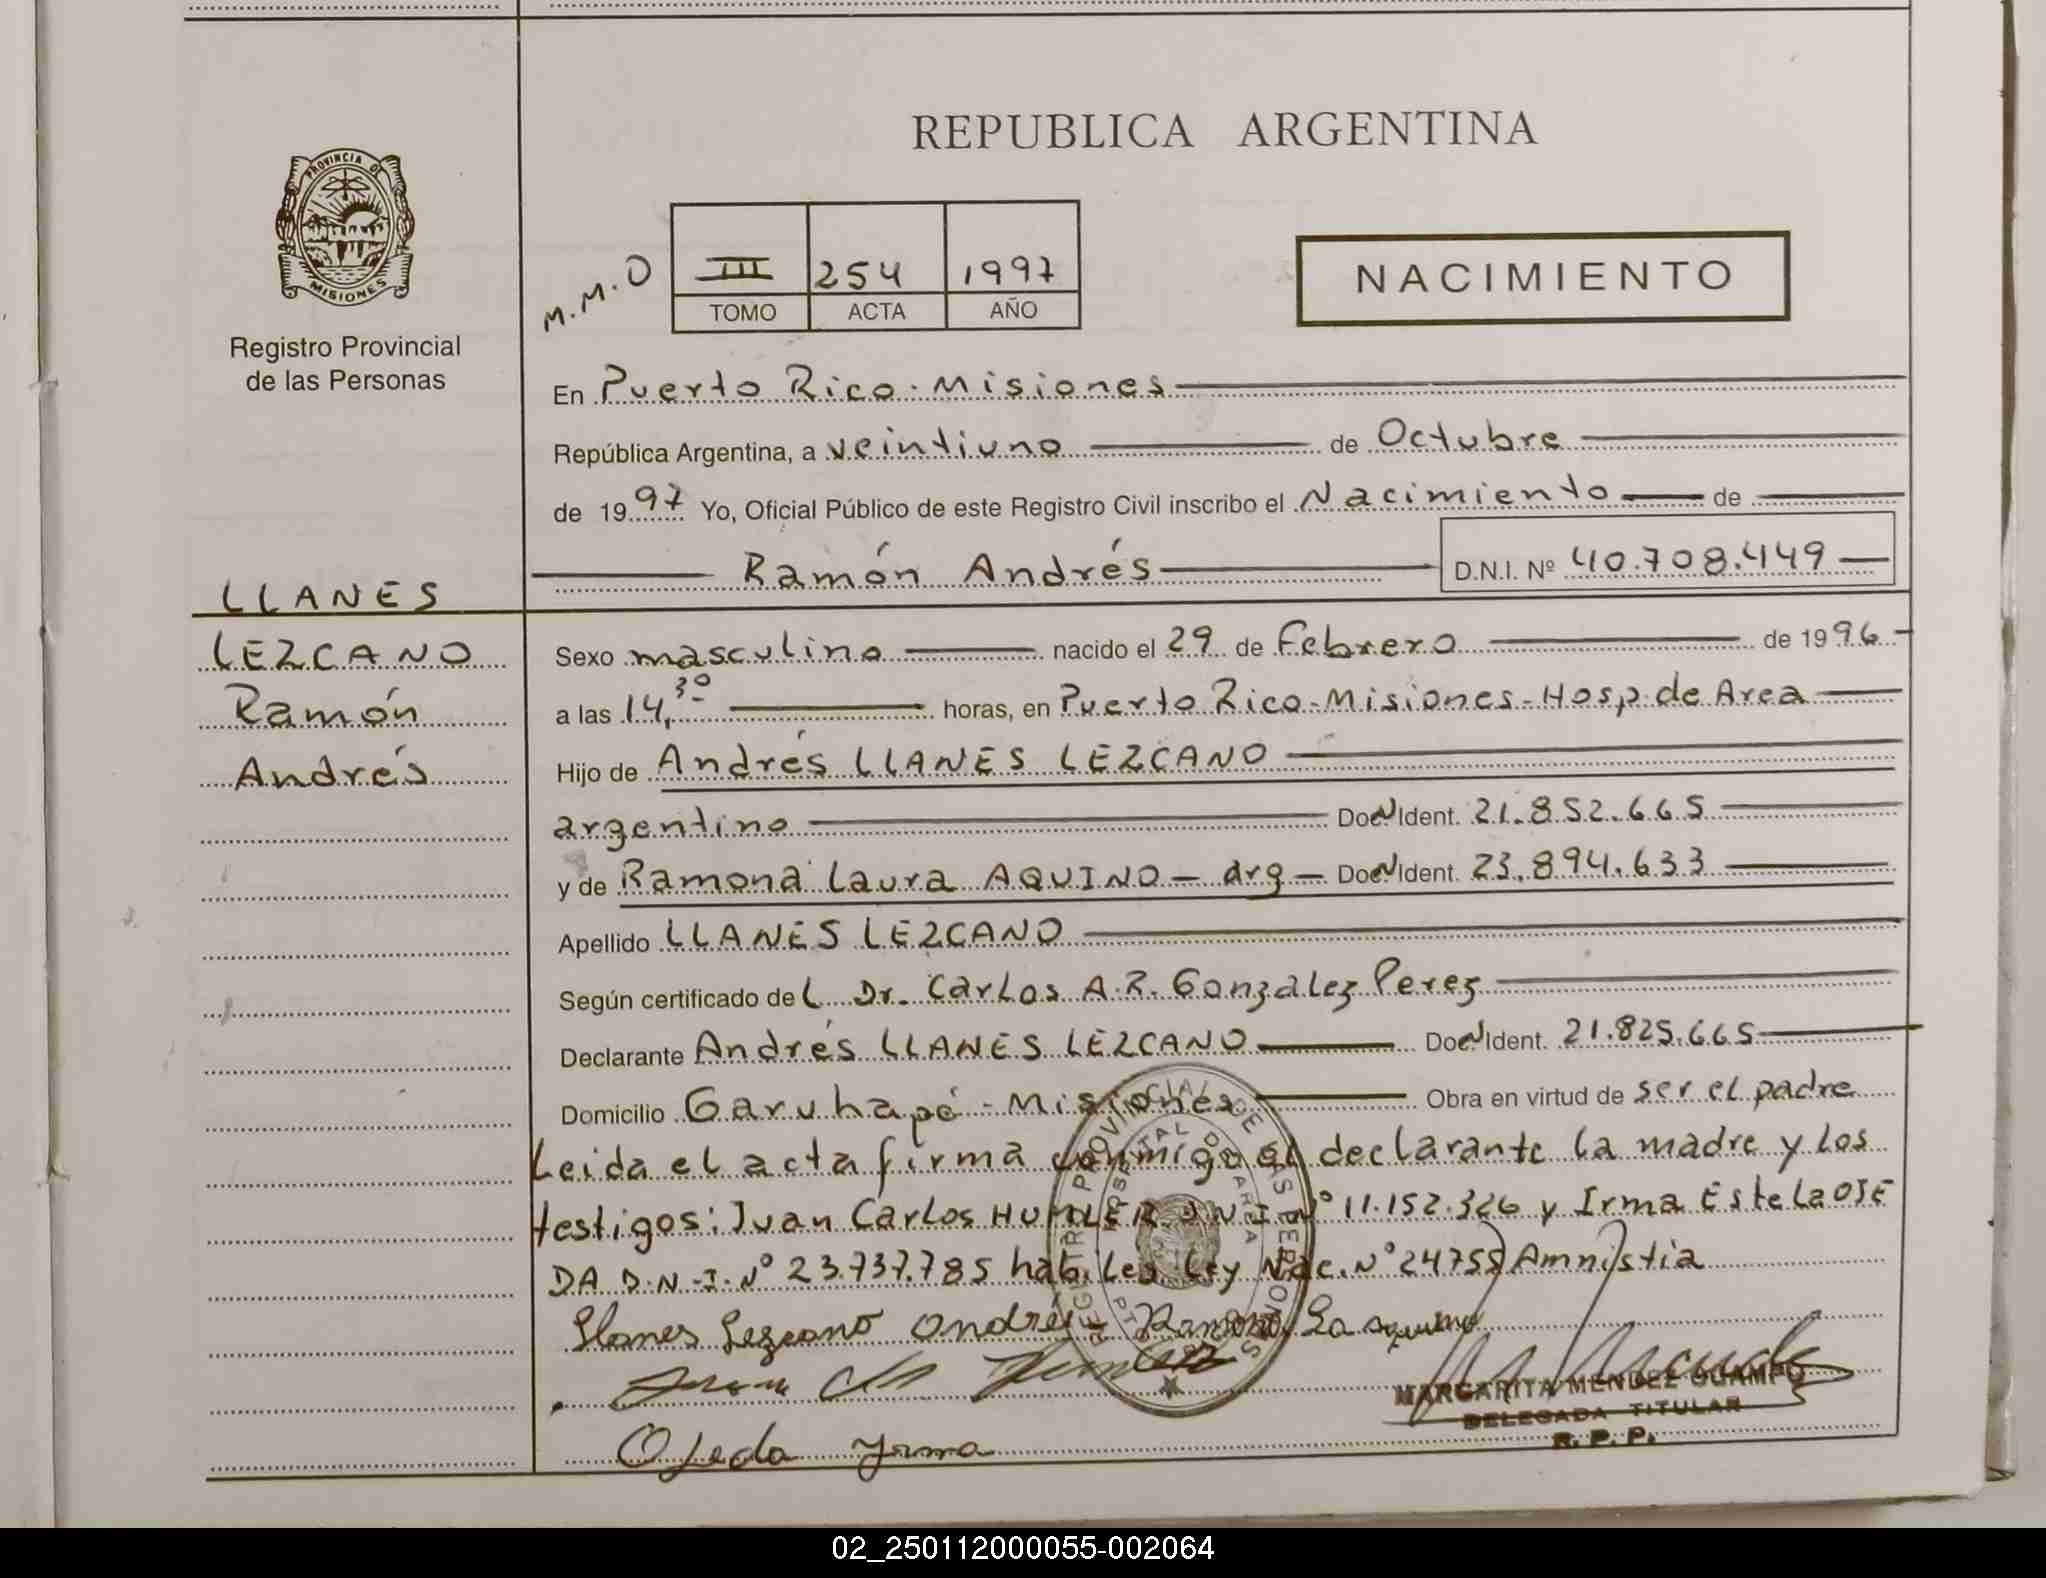 REPUBLICA ARGENTINA
PROVINCIA DE
MISIONES
Registro Provincial
de las Personas
M.M.O
III 254 1997
TOMO ACTA AÑO
NACIMIENTO
En Puerto Rico - Misiones
República Argentina, a veintiuno de Octubre
de 1997 Yo, Oficial Público de este Registro Civil inscribo el Nacimiento de
Ramón Andrés D.N.I. Nº 40.708.449
LLANES
LEZCANO
Ramón
Andrés
Sexo masculino nacido el 29 de Febrero de 1996
a las 14,30 horas, en Puerto Rico - Misiones - Hosp. de Area
Hijo de Andrés LLANES LEZCANO
argentino Doc. N Ident. 21.852.665
y de Ramona Laura AQUINO - arg - Doc. N Ident. 23.894.633
Apellido LLANES LEZCANO
Según certificado del Dr. Carlos A.R. Gonzalez Perez
Declarante Andrés LLANES LEZCANO Doc. N Ident. 21.825.665
Domicilio Garuhapé - Misiones Obra en virtud de ser el padre
Leida el acta firma conmigo el declarante la madre y los
testigos: Juan Carlos D.N.I. Nº 11.152.326 y Irma Estela OJE
DA D.N.I. Nº 23.737.785 habiles Ley Nac. Nº 24755 Amnistia
Llanes Lezcano Andrés Ramona La aquino
Ojeda Yrma
MARGARITA MENDEZ OCAMPO
DELEGADA TITULAR
R. P. P.
REGISTRO PROVINCIAL DE LAS PERSONAS
02_250112000055-002064